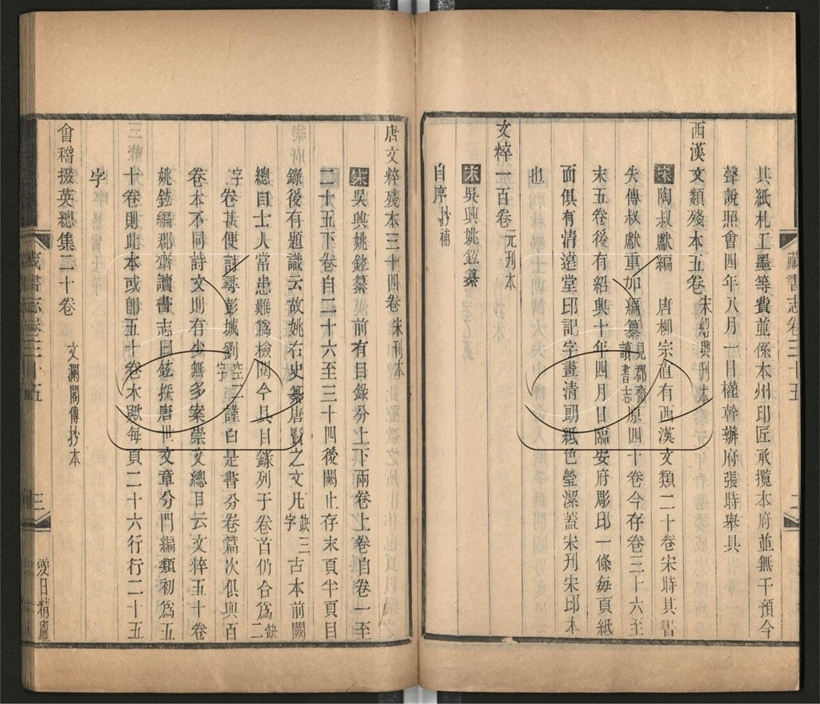 其紙札工墨等費並係本州印匠承攬本府並無干預今
聲說照會四年八月一日權幹辦府張時舉具
西漢文類殘本五卷 宋紹興刊本
宋陶叔獻編 唐柳宗直有西漢文類二十卷宋時其書
失傳叔獻重加編纂見郡齋讀書志原四十卷今存卷三十六至
末五卷後有紹興十年四月日臨安府彫印一條每頁紙
面俱有清遶堂印記字畫清朗紙色瑩潔蓋宋刊宋印本
也
文粹一百卷 元刊本
宋吳興姚鉉纂
自序抄補
藏書志卷三十五
二
唐文粹殘本三十四卷 宋刊本
宋吳興姚鉉纂 前有目錄分上下兩卷上卷自卷一至
二十五下卷自二十六至三十四後闕止存末頁半頁目
錄後有題識云故姚右史纂唐賢之文凡缺三字古本前闕
總目士人常患難為檢閱今具目錄列于卷首仍合為缺二
字卷甚便討尋彭城劉空二字謹白是書分卷篇次俱與百
卷本不同詩文則有少無多案崇文總目云文粹五十卷
姚鉉編郡齋讀書志曰鉉採唐世文章分門編類初為五
十卷則此本或即五十卷本歟每頁二十六行行二十五
字
會稽掇英總集二十卷 文瀾閣傳抄本
藏書志卷三十五
三
愛日精廬